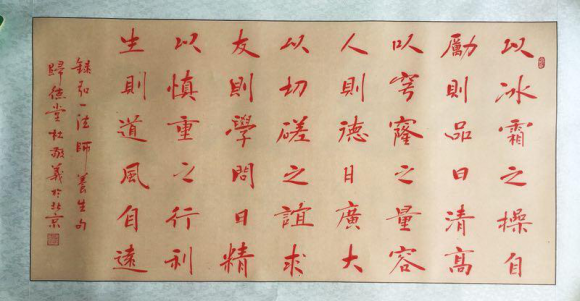 以冰霜之操自
勵則品日清高
以穹窿之量容
人則德日廣大
以切磋之誼求
友則學問日精
以慎重之行利
生則道風自遠
錄弘一法師養生句
歸德堂杜敬義於北京